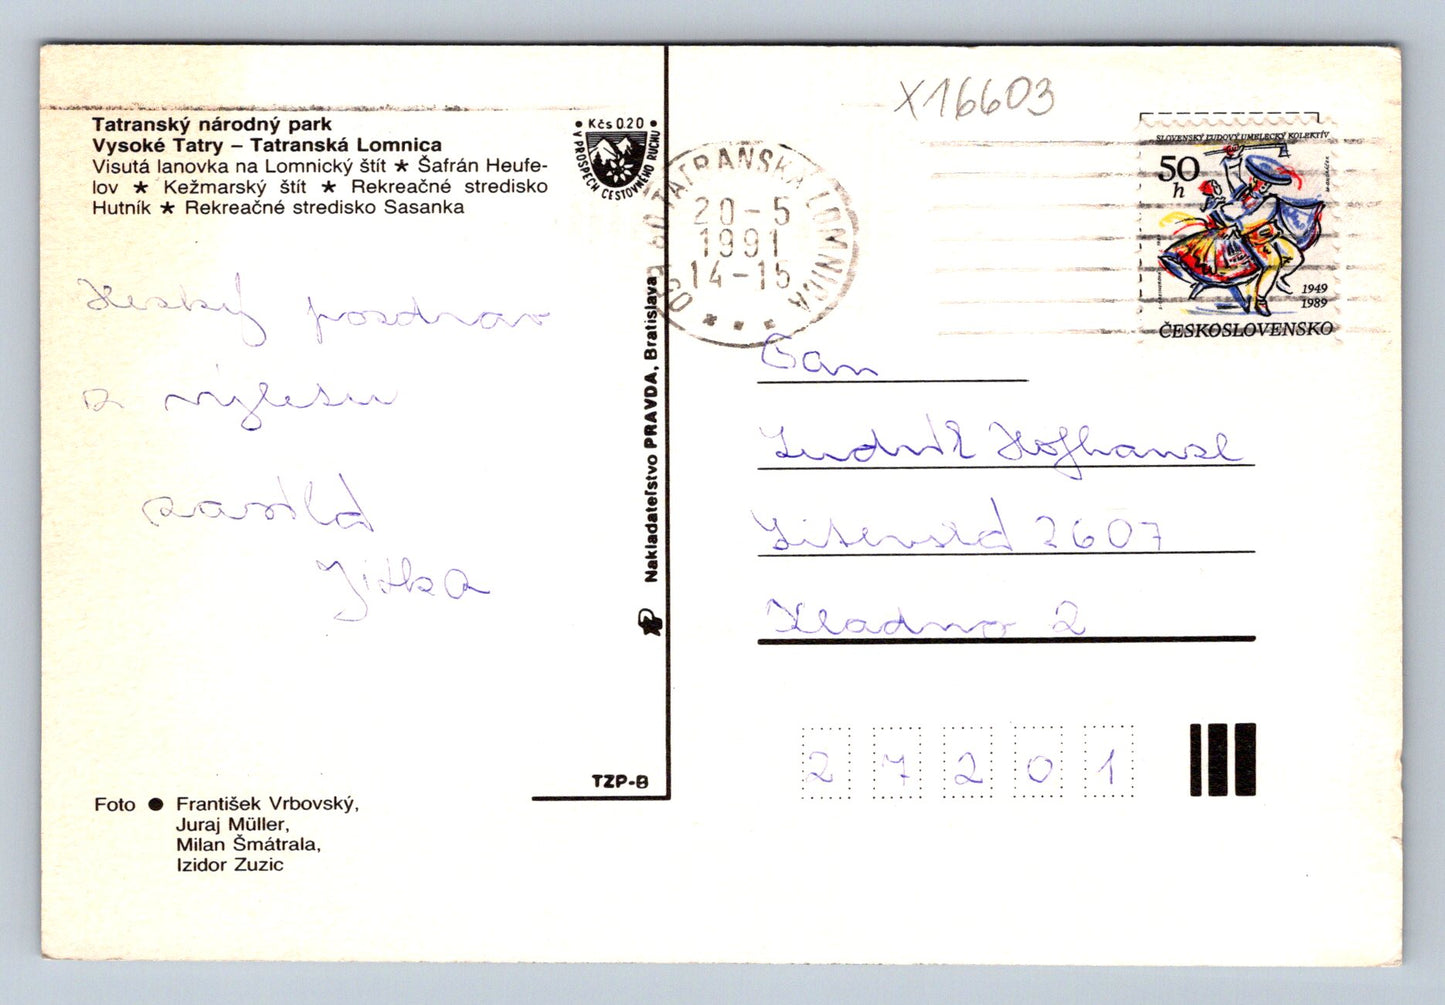 X16603
Tatranský národný park
Vysoké Tatry – Tatranská Lomnica
Visutá lanovka na Lomnický štít ★ Šafrán Heufe-
lov ★ Kežmarský štít ★ Rekreačné stredisko
Hutník ★ Rekreačné stredisko Sasanka
• Kčs 0.20 •
V PROSPECH CESTOVNÉHO RUCHU
Hezký pozdrav
z výletu
zasílá
Jitka
Nakladateľstvo PRAVDA, Bratislava
TZP-B
Foto ● František Vrbovský,
Juraj Müller,
Milan Šmátrala,
Izidor Zuzic
TATRANSKÁ LOMNICA
059 60
20-5
1991
14-15
SLOVENSKÝ ĽUDOVÝ UMELECKÝ KOLEKTÍV
50
h
1949
1989
ČESKOSLOVENSKO
Pan
Ludvík Hofhansl
2607
Kladno 2
27201